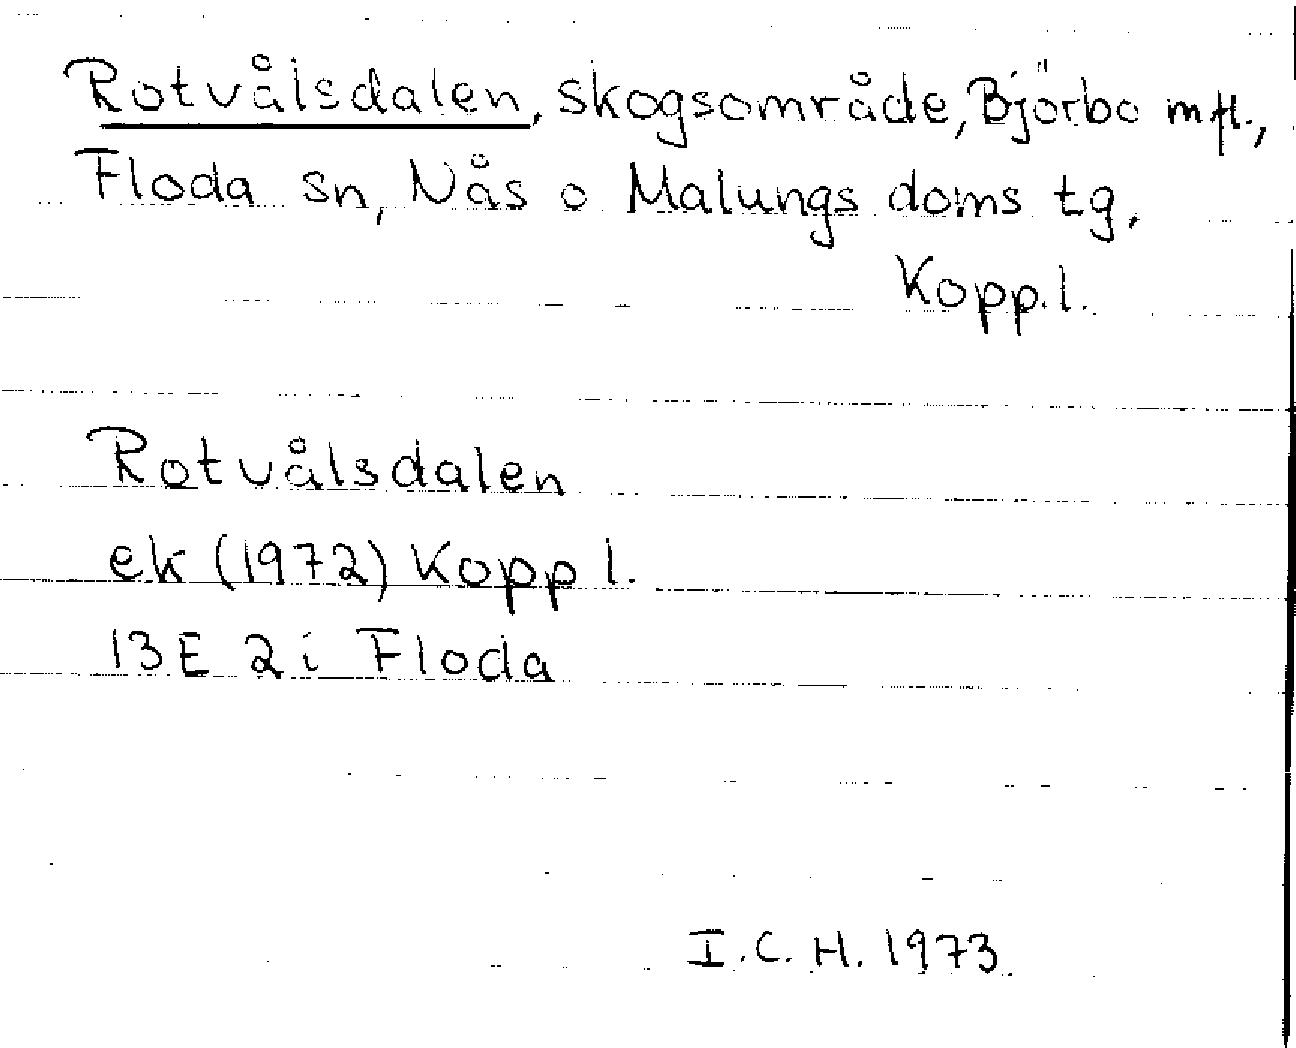 Rotvålsdalen, skogsområde, Björbo mfl.,
Floda sn, Nås o Malungs doms tg.
Kopp.l.
Rotvålsdalen
ek (1972) Kopp l.
13E 2i Floda
I.C.H. 1973